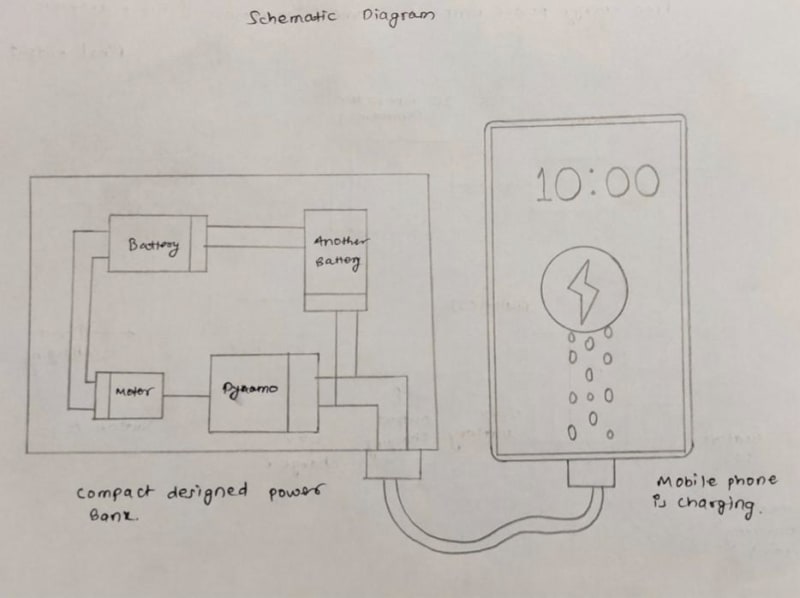 Schematic Diagram
10:00
Battery
Another
Battery
Motor
Dynamo
Compact designed power
Bank.
Mobile phone
is charging.